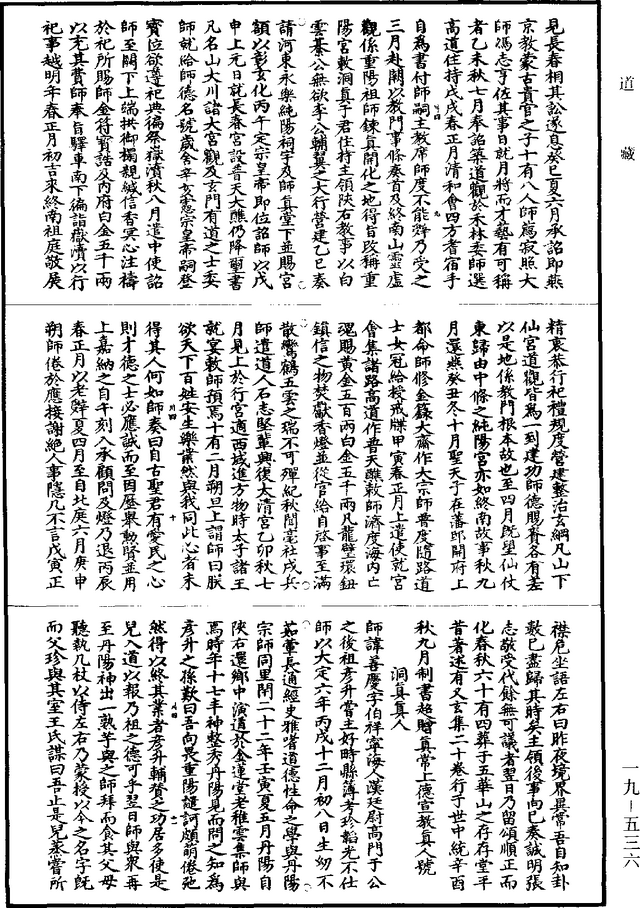 道藏
見長春相其訟遂息癸巳夏六月承詔即燕
京教蒙古貴官之子十有八人師薦寂照大
師馮志亨佐其事日就月將而才藝有可稱
者乙未秋七月奉詔築道觀於禾林委師選
高道住持戊戌春正月清和會四方耆宿手
自為書付師嗣主教席師度不能辭乃受之
三月赴闕以教門事條奏首及終南山靈虛
觀係重陽祖師鍊真開化之地得旨改稱重
陽宮敕洞真子君住持主領陝右教事以白
雲綦公無欲李公輔翼之大行營建乙巳奏
請河東永樂純陽祠宇及師真堂下並賜宮
額以彰玄化丙午定宗皇帝即位詔師以戊
申上元日就長春宮設普天大醮仍降璽書
凡名山大川諸大宮觀及玄門有道之士委
師就給師德名號歲舍辛亥憲宗皇帝嗣登
寶位欲遵祀典徧祭嶽瀆秋八月遣中使詔
師至闕下上端拱御榻親緘信香冥心注禱
於祀所賜師金符寶誥及內府白金五千兩
以充其費師奉旨驛車南下徧詣嶽瀆以行
祀事越明年春正月初吉來終南祖庭敬展
精衷恭行祀禮規度營建整治玄綱凡山下
仙宮道觀皆為一到建功師德賜賚各有差
以是地係教門根本故也至四月既望仙仗
東歸由中條之純陽宮亦如終南故事秋九
月還燕癸丑冬十月聖天子在藩邸開府上
都命師修金籙大齋作大宗師普度隨路道
士女冠給授戒牒甲寅春正月上遣使就宮
會集諸路高道作普天醮敕師濟度海內亡
魂賜黃金五百兩白金五千兩凡龍璧環鈕
鎮信之物焚獻香燈並從官給自啓事至滿
散鸞鶴五雲之瑞不可殫紀秋間毫社戍兵
師遣道人石志堅輦興復太清宮乙卯秋七
月見上於行宮適西域進方物時太子諸王
就宴敕師預焉十有二月朔旦上謂師曰朕
欲天下百姓安生樂業然與我同此心者未
得其人何如師奏曰自古聖君有愛民之心
則才德之士必應誠而至因歷舉勳賢並用
上嘉納之自午刻入承顧問及燈乃退丙辰
春正月以老辭夏四月至自北庭六月庚申
朔師倦於應接謝絕人事隱几不言戊寅正
襟危坐語左右曰昨夜境界異常吾自知卦
數已盡歸其時矣主領後事向已奏誠明張
志敬受代餘無可議者翌日乃留頌順正而
化春秋六十有四葬于五華山之存存堂平
昔著述有又玄集二十卷行于世中統辛酉
秋九月制書超贈真常上德宣教真人號
洞真真人
師諱善慶字伯祥寧海人漢廷尉高門于公
之後祖彥升嘗主好時縣簿考珍韜光不仕
師以大定六年丙戌十二月初八日生幼不
茹葷長通經史雅嗜道德性命之學與丹陽
宗師同里閈二十二年壬寅夏五月丹陽自
陝右還鄉中演道於金蓮堂老稚雲集師與
焉時年十七丰神整秀丹陽見而問之知為
彥升之孫歎曰吾向畏重陽譴訶頗萌倦弛
然得以終其業者彥升輔贊之功居多使是
兒入道以報乃祖之德可乎翌日師與眾再
至丹陽神出一熟芋與之師拜而食其父母
聽執几杖以侍左右乃蒙授以今之名字既
而父珍與其室王氏謀曰吾止是兒蒸嘗所
一九－五三六